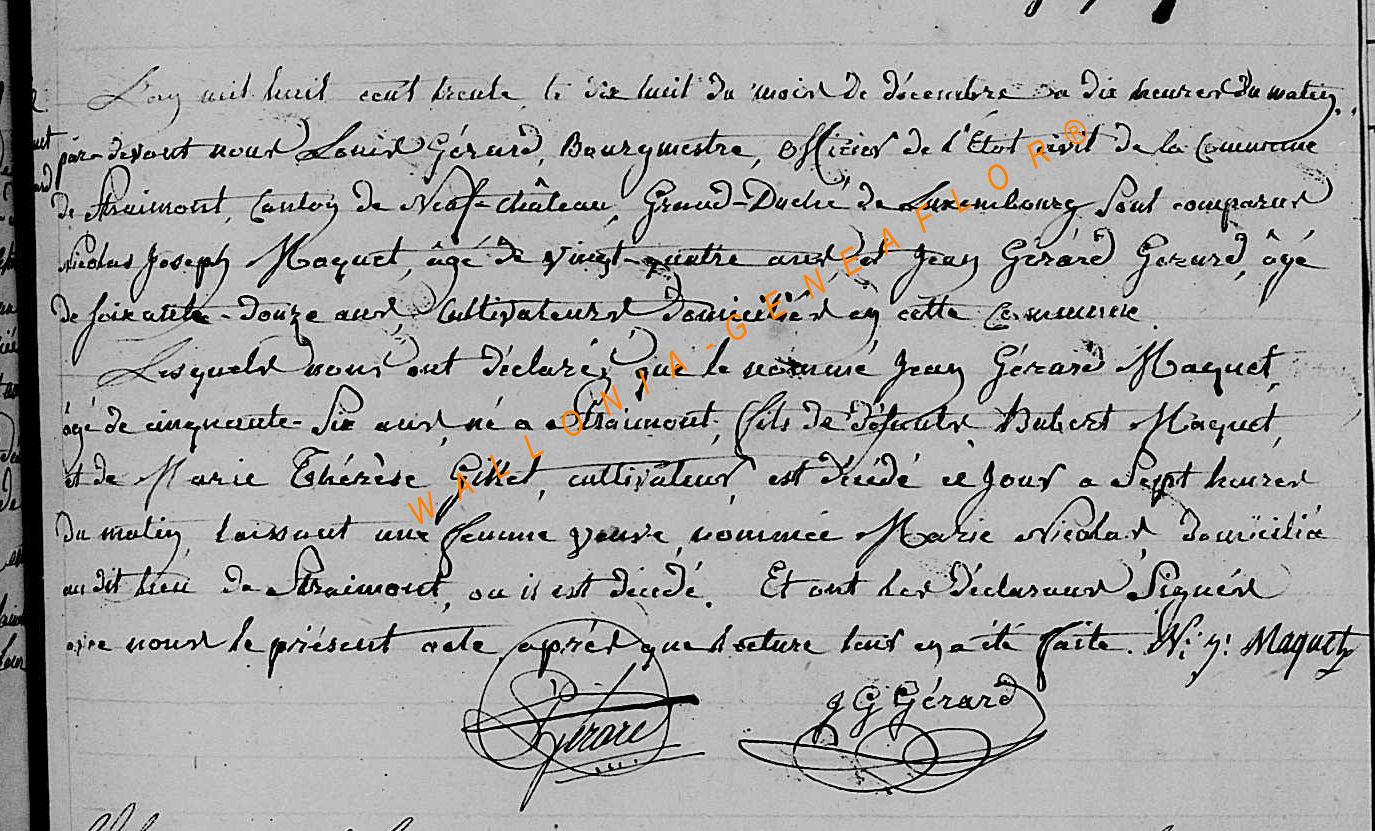 L'an mil huit cent trente, le dix huit du mois de décembre a dix heures du matin,
par-devant nous Louis Gérard, Bourgmestre, officier de l'État civil de la Commune
de Straimont, Canton de Neuf-château, Grand-Duché de Luxembourg sont comparus
Nicolas Joseph Maquet, âgé de vingt-quatre ans et Jean Gérard Gérard, âgé
de soixante-douze ans, Cultivateurs domiciliés en cette Commune.
Lesquels nous ont déclarés que le nommé Jean Gérard Maquet,
âgé de cinquante-six ans, né a Straimont, fils de défunts Hubert Maquet,
et de Marie Thérèse Gillet, cultivateur, est décédé ce jour a sept heures
du matin, laissant une femme veuve, nommée Marie Nicolas, domicilié
au dit lieu de Straimont, ou il est décédé. Et ont les déclarans signés
avec nous le présent acte après que lecture leur en a été faite. N: J: Maquet
Gérard
J G Gérard
WALLONIA-GENEAFLOR®